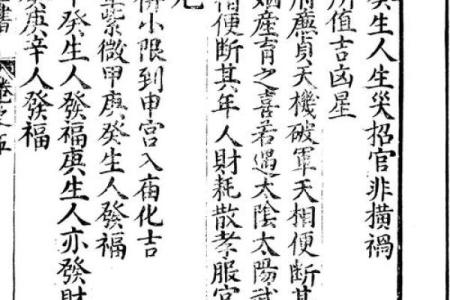 癸生人生災招官非橫禍
所值吉凶星
府廉貞天機破軍天相便斷其
姻產育之喜若遇太陰太陽武
便斷其年人財耗散孝服官
小限到申宮入庙化吉
紫微甲庚癸生人發福
癸生人發福庚生人亦發財
庚辛人發福
書 卷之五